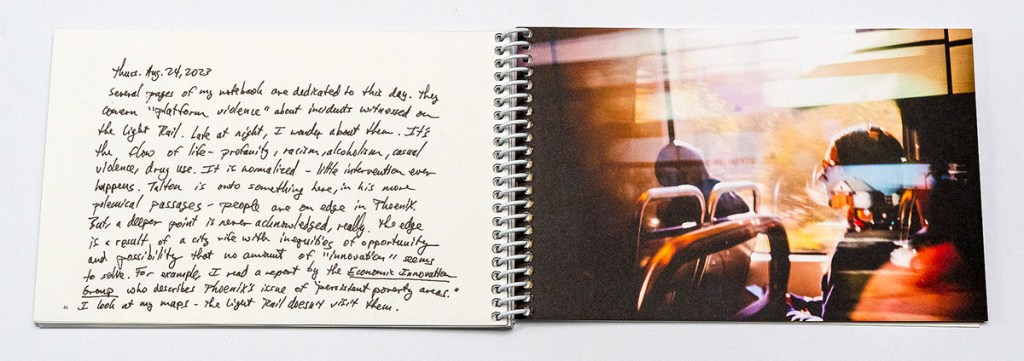 Thurs. Aug. 24, 2023
Several pages of my notebook are dedicated to this day. They
concern "platform violence" about incidents witnessed on
the Light Rail. Late at night, I wonder about them. It's
the flow of life - profanity, racism, alcoholism, casual
violence, drug use. It is normalized - little intervention ever
happens. Talton is onto something here, in his more
polemical passages - people are on edge in Phoenix.
But a deeper point is never acknowledged, really. The edge
is a result of a city rife with inequities of opportunity
and possibility that no amount of "innovation" seems
to solve. For example I read a report by the Economic Innovation
Group who describes Phoenix's issue of "persistent poverty areas."
I look at my maps - the Light Rail doesn't visit them.